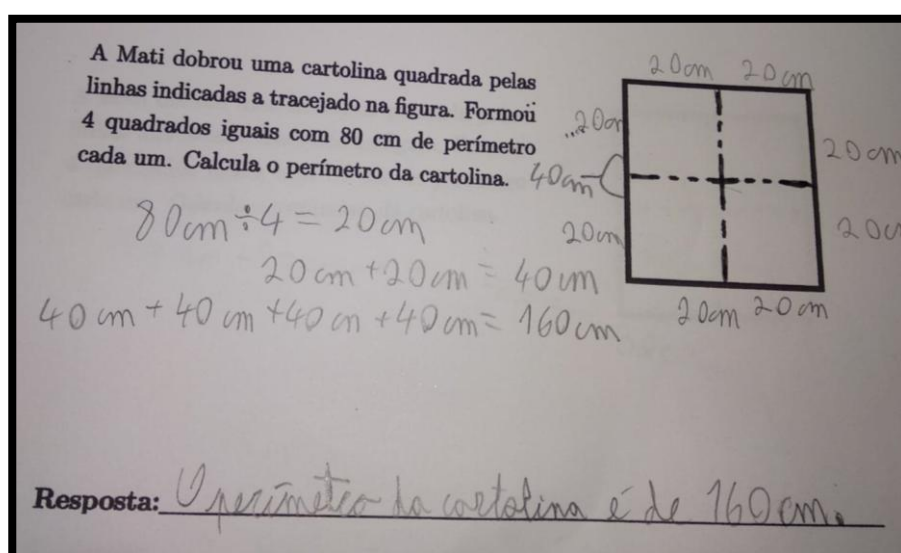 A Mati dobrou uma cartolina quadrada pelas
linhas indicadas a tracejado na figura. Formou
4 quadrados iguais com 80 cm de perímetro
cada um. Calcula o perímetro da cartolina.
20cm 20cm
20cm
20cm
40cm
20cm
20c
20cm 20cm
80cm ÷ 4 = 20cm
20cm + 20cm = 40cm
40cm + 40cm + 40cm + 40cm = 160cm
Resposta: O perímetro da cartolina é de 160cm.